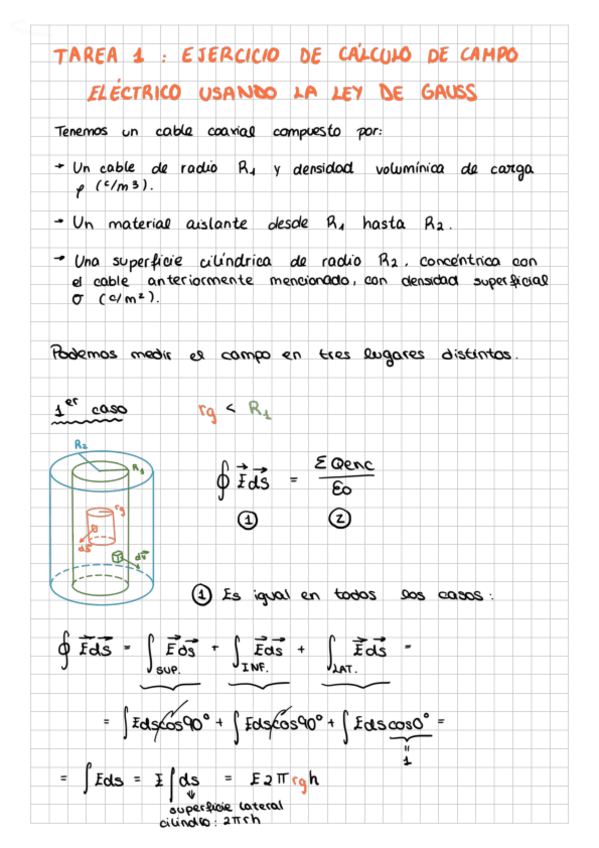 TAREA 1 : EJERCICIO DE CÁLCULO DE CAMPO
ELÉCTRICO USANDO LA LEY DE GAUSS
Tenemos un cable coaxial compuesto por:
→ Un cable de radio R₁ y densidad volumínica de carga
ρ (C/m3).
→ Un material aislante desde R₁ hasta R₂.
→ Una superficie cilíndrica de radio R₂, concéntrica con
el cable anteriormente mencionado, con densidad superficial
σ (C/m²).
Podemos medir el campo en tres lugares distintos.
1er caso rg < R₁
R₂ R₁ rg ds dv
∮ E ds = Σ Qenc / εo
① ②
① Es igual en todos los casos:
∮ E ds = ∫SUP. E ds + ∫INF. E ds + ∫LAT. E ds =
= ∫Edscos90° + ∫Edscos90° + ∫Edscos0° =
= 1
= ∫Eds = E∫ds = E2πrgh
superficie lateral
cilindro: 2πrh